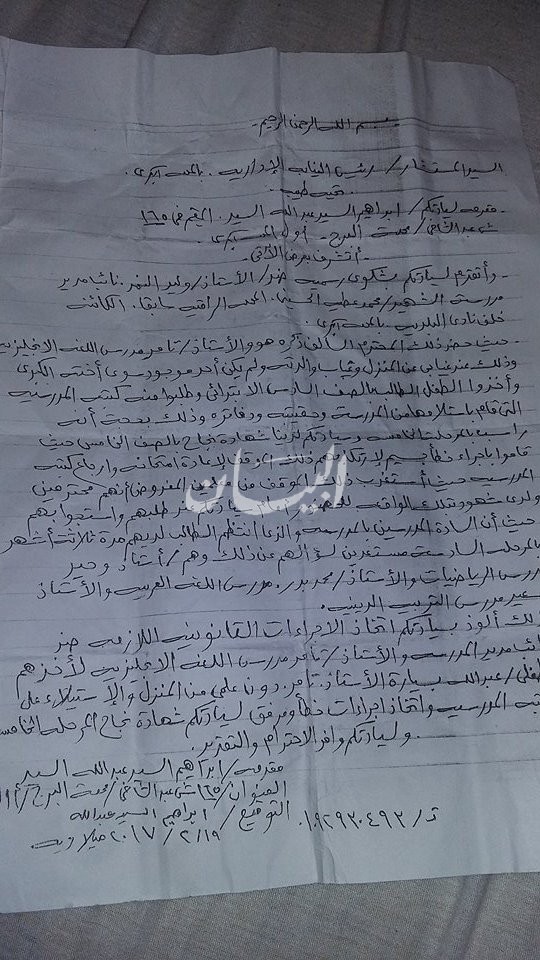 بسم الله الرحمن الرحيم
السيد المستشار / رئيس النيابة الإدارية بالمحلة الكبرى.
تحية طيبة
مقدمه لسيادتكم / ابراهيم السيد عبد الله السيد. المقيم فى ١٦٥
ش عبد الشافى / محلة البرج - أول المحلة الكبرى.
- أتشرف بعرض الآتى -
- وأتقدم لسيادتكم بشكوى رسمية ضد / الأستاذ / وليد النمر. نائب مدير
مدرسة الشهيد / محمد عطية الحسينى. المحلة الراقية سابقا. الكائنة
خلف نادى البلدية بالمحلة الكبرى.
- حيث حضر ذلك المحترم السالف ذكره هو والأستاذ / تامر مدرس اللغة الانجليزية
وذلك عند غيابى عن المنزل وغياب والدته ولم يكن أحد موجود سوى أخته الكبرى
وأخذوا الطفل الطالب بالصف السادس الابتدائى وطلبوا منه كتب المدرسة
التى قام باستلامها من المدرسة وحقيبته ودفاتره وذلك بحجة أنه
راسب بالمرحلة الخامسة وسيادتكم لدينا شهادة نجاح بالصف الخامس حيث
قاموا باجراء خطأ جسيم لإعادة امتحانه وارجاع كتبه
المدرسية حيث أستغرب ذلك الموقف من المفروض أنهم محترمين
ولدى شهود بتلك الواقعة سيادتكم طلبهم واستجوابهم
حيث أن السادة المدرسين بالمدرسة والذى انتظم الطالب لديهم مدة ثلاثة أشهر
بالمرحلة السادسة مستعدين لسؤالهم عن ذلك وهم / أستاذ وحيد
مدرس الرياضيات والأستاذ / محمد بدر. مدرس اللغة العربية والأستاذ
سعيد مدرس التربية الدينية.
لذلك ألوذ بسيادتكم اتخاذ الاجراءات القانونية اللازمة ضد
نائب مدير المدرسة والأستاذ / تامر مدرس اللغة الانجليزية لأخذهم
طفلى / عبد الله بسيارة الأستاذ تامر. دون علمى من المنزل والإستيلاء على
كتبه المدرسية واتخاذ اجراءات خطأ ومرفق لسيادتكم شهادة نجاح المرحلة الخامسة
ولسيادتكم وافر الاحترام والتقدير.
مقدمه / ابراهيم السيد عبد الله السيد
العنوان / ١٦٥ ش عبد الشافى / محلة البرج / أول
التوقيع / ابراهيم السيد عبد الله
ت / ٠١٠٩٢٩٣٠٤٩٣
٢٠١٧/٢/١٩ ميلادية
البيان